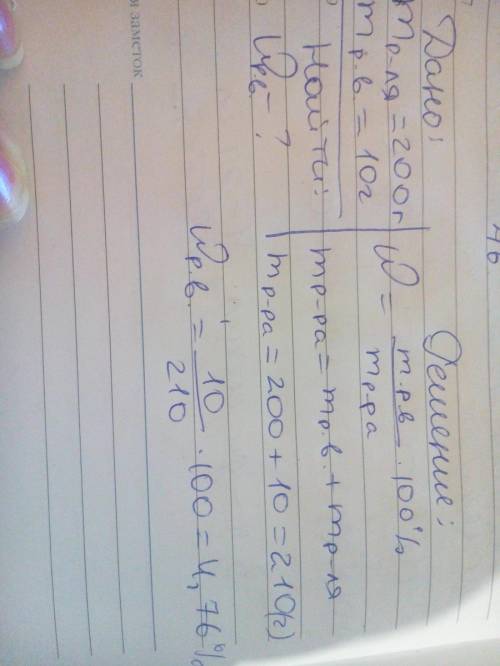 Дано:
m р-ля = 200г
m р.в. = 10г
Найти:
W р.в - ?
Решение:
W = m.р.в / m р.ра · 100%
m р-ра = m р.в. + m р-ля
m р-ра = 200 + 10 = 210(г)
W р.в. = 10 / 210 · 100 = 4,76%
заметок